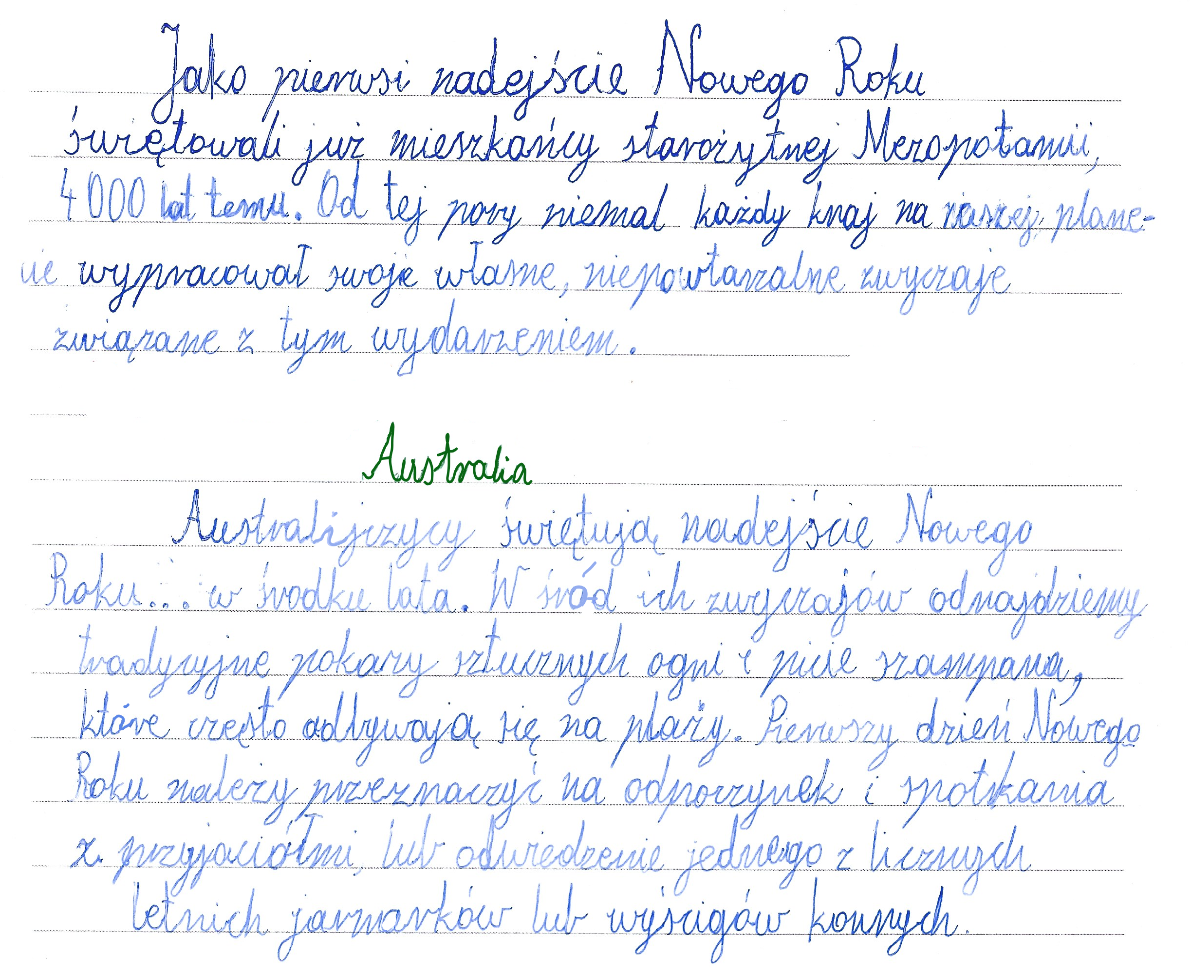 Jako pierwsi nadejście Nowego Roku
świętowali już mieszkańcy starożytnej Mezopotamii,
4000 lat temu. Od tej pory niemal każdy kraj na naszej plane-
cie wypracował swoje własne, niepowtarzalne zwyczaje
związane z tym wydarzeniem.
Australia
Australijczycy świętują nadejście Nowego
Roku... w środku lata. W śród ich zwyczajów odnajdziemy
tradycyjne pokazy sztucznych ogni i picie szampana,
które często odbywają się na plaży. Pierwszy dzień Nowego
Roku należy przeznaczyć na odpoczynek i spotkania
z przyjaciółmi, lub odwiedzenie jednego z licznych
letnich jarmarków lub wyścigów konnych.